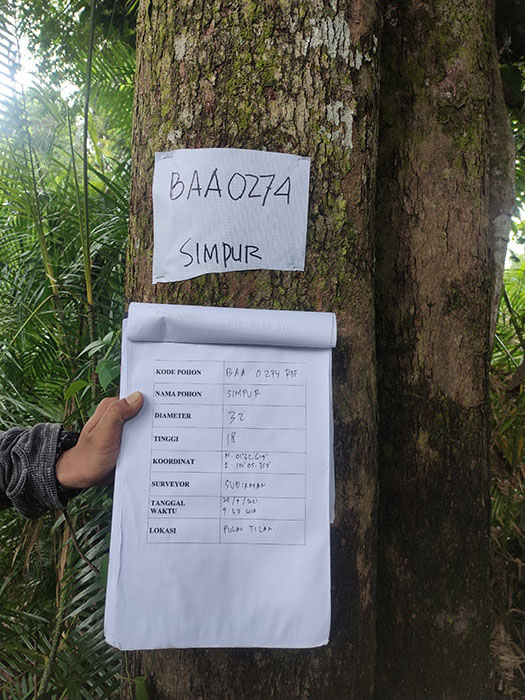 BAA0274
SIMPUR
KODE POHON BAA 0274 RSF
NAMA POHON SIMPUR
DIAMETER 32
TINGGI 18
KOORDINAT
SURVEYOR SUDIRMAN
TANGGAL
WAKTU
LOKASI PULAU TILAN